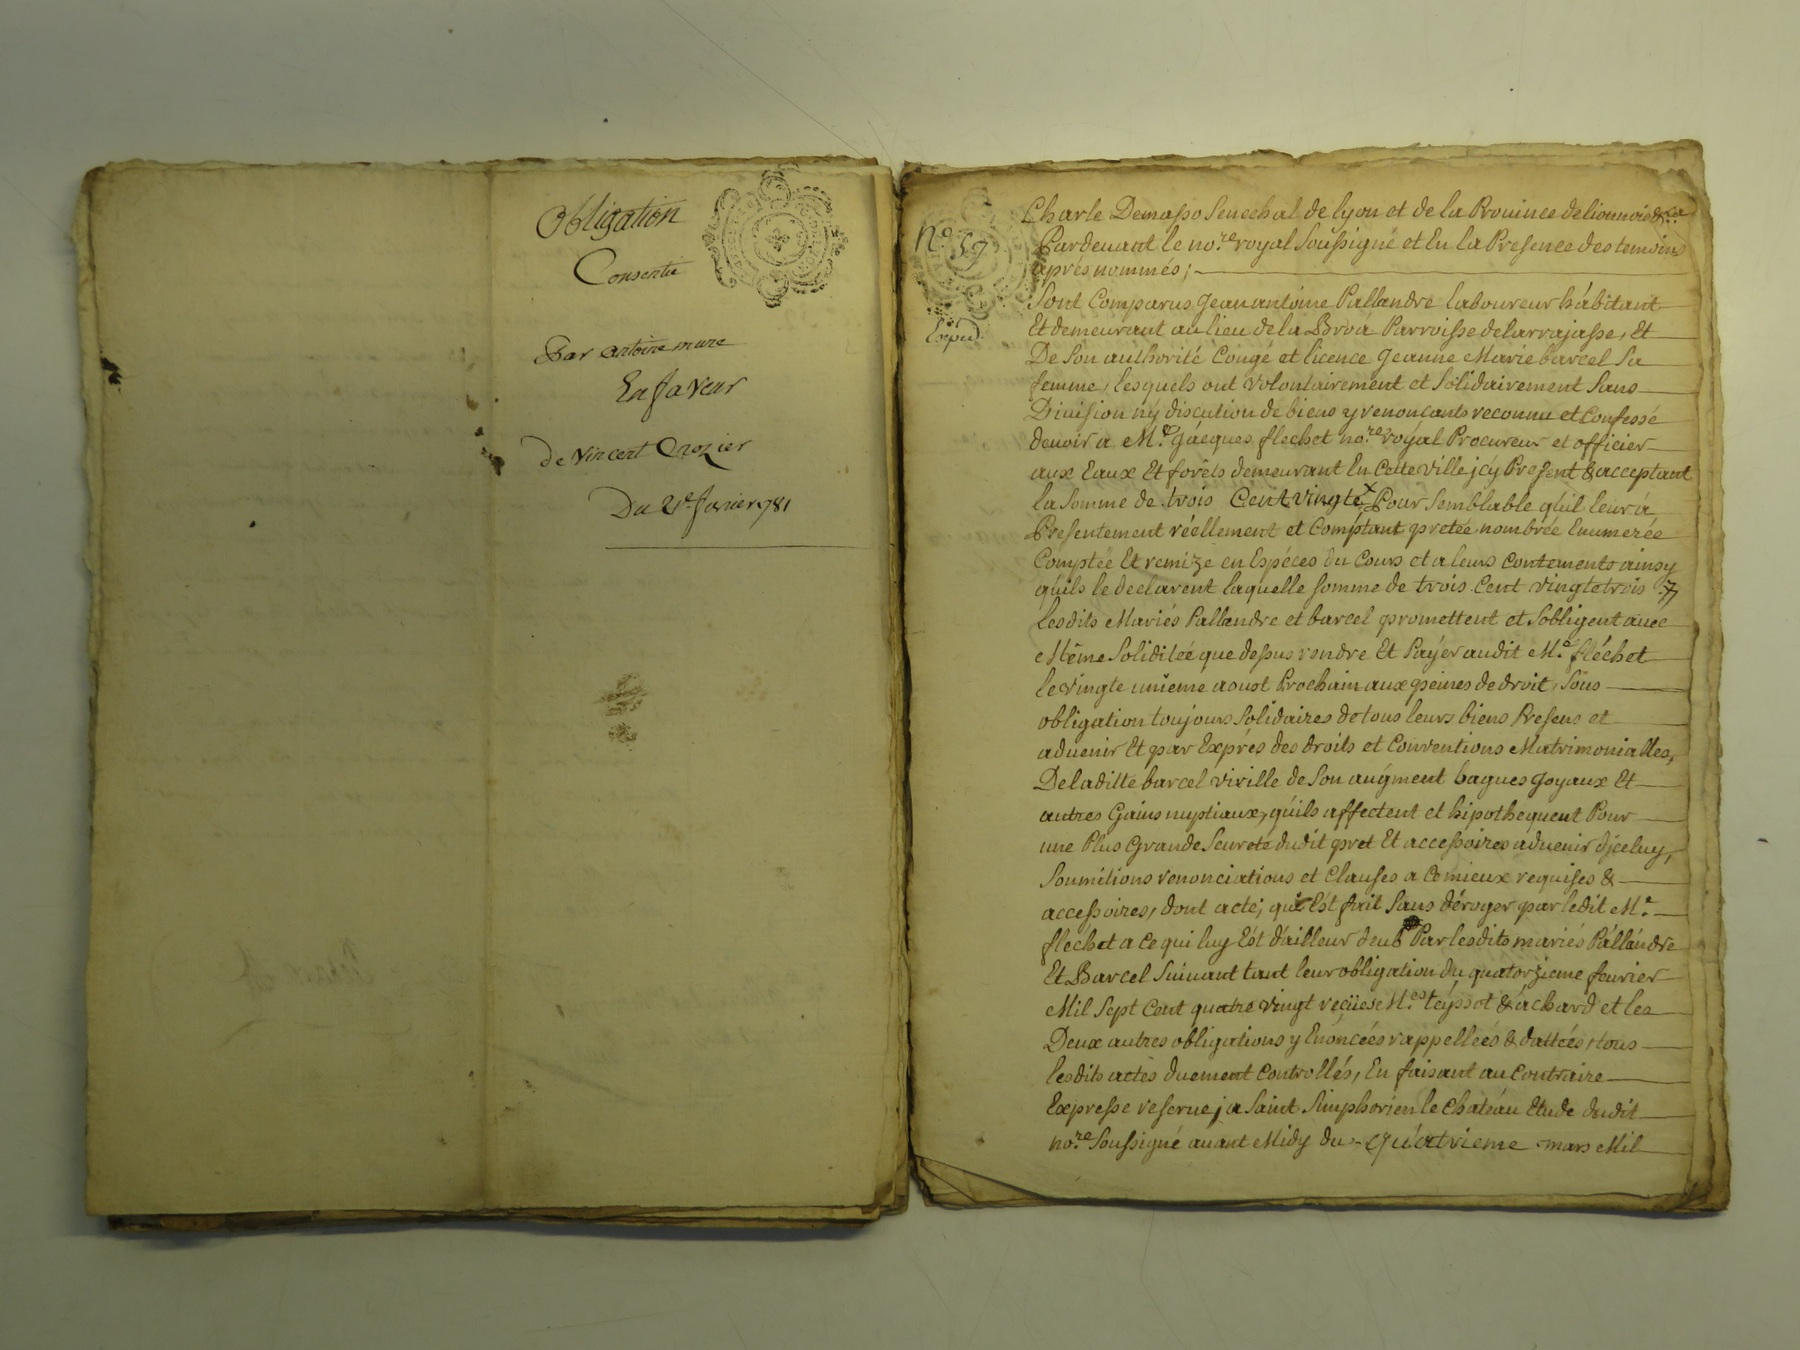 Obligation
Consentie
Par antoine mure
En faveur
De Vincent Crozier
Du 21e janvier 781
No 57
Expd.
Charle Demasso Senechal de lyon et de la Prouince de lionnois &ca
Pardeuant le nore royal Soussigné et En la Presence des temoins
après nommés;
Sont Comparus Jean antoine Pallandre laboureur hábitant
Et demeurant au lieu de la Broá Parroisse delarrajasse, Et
De Son authorité Congé et licence Jeanne Marie barcel Sa
femme, lesquels ont volontairement et Solidairement Sans
Diuision ny discution de biens y renonçants reconnu et Confessé
deuoir a Me Jácques flechet nore royal Procureur et officier
aux Eaux Et forêts demeurant En Cette ville jcy Present & acceptant
la Somme de trois Cent vingte Pour Semblable q'uil leur á
Presentement réellement et Comptant pretée nombrée Enumerée
Comptée Et remize en Espéces du Cours et a leurs contements ainsy
qu'ils le declarent laquelle Somme de trois Cent vingtetrois
lesdits Mariés Pallandre et barcel promettent et S'obligent auec
Même Soliditée que dessus rendre Et Payer audit Me fléchet
le vingte unieme aoust Prochain aux peines de droit, Sous
obligation toujours Solidaires de tous leurs biens Presens et
aduenir Et par Exprés des droits et Conventions Matrimonialles,
De laditte barcel virille de Son augment bagues Joyaux Et
autres Gains nuptiaux, qu'ils affectent et hipothequent Pour
une Plus Grande Seureté dudit pret Et accessoires aduenir d'jceluy,
Soumitions renonciations et Clauses a ce mieux requises &
accessoires, dont acte; qui Est fait Sans déroger par ledit Me
flechet a ce qui luy Est d'ailleur deub Par lesdits mariés Pállándre
Et Barcel Suiuant tant leur obligation du quatorzieme feurier
Mil Sept Cent quatre vingt reçüe Mes teyssot & achard et les
Deux autres obligations y Enoncées rappellées & dattées, tous
lesdits actes duement Controllés, En faisant au Contraire
Expresse reserue; a Saint Simphorien le Chateau Etude dudit
nore Soussigné auant Midy du quatrieme mars Mil